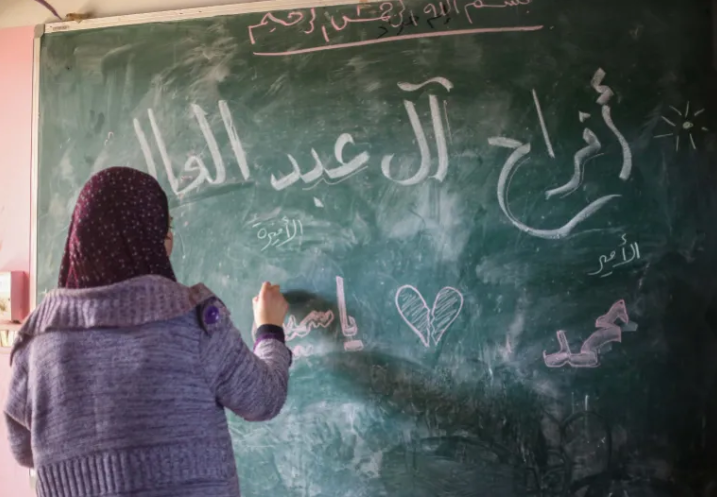 بسم الله الرحمن الرحيم
أفراح آل عبد العال
الأمير الأميرة
محمد ياسمين